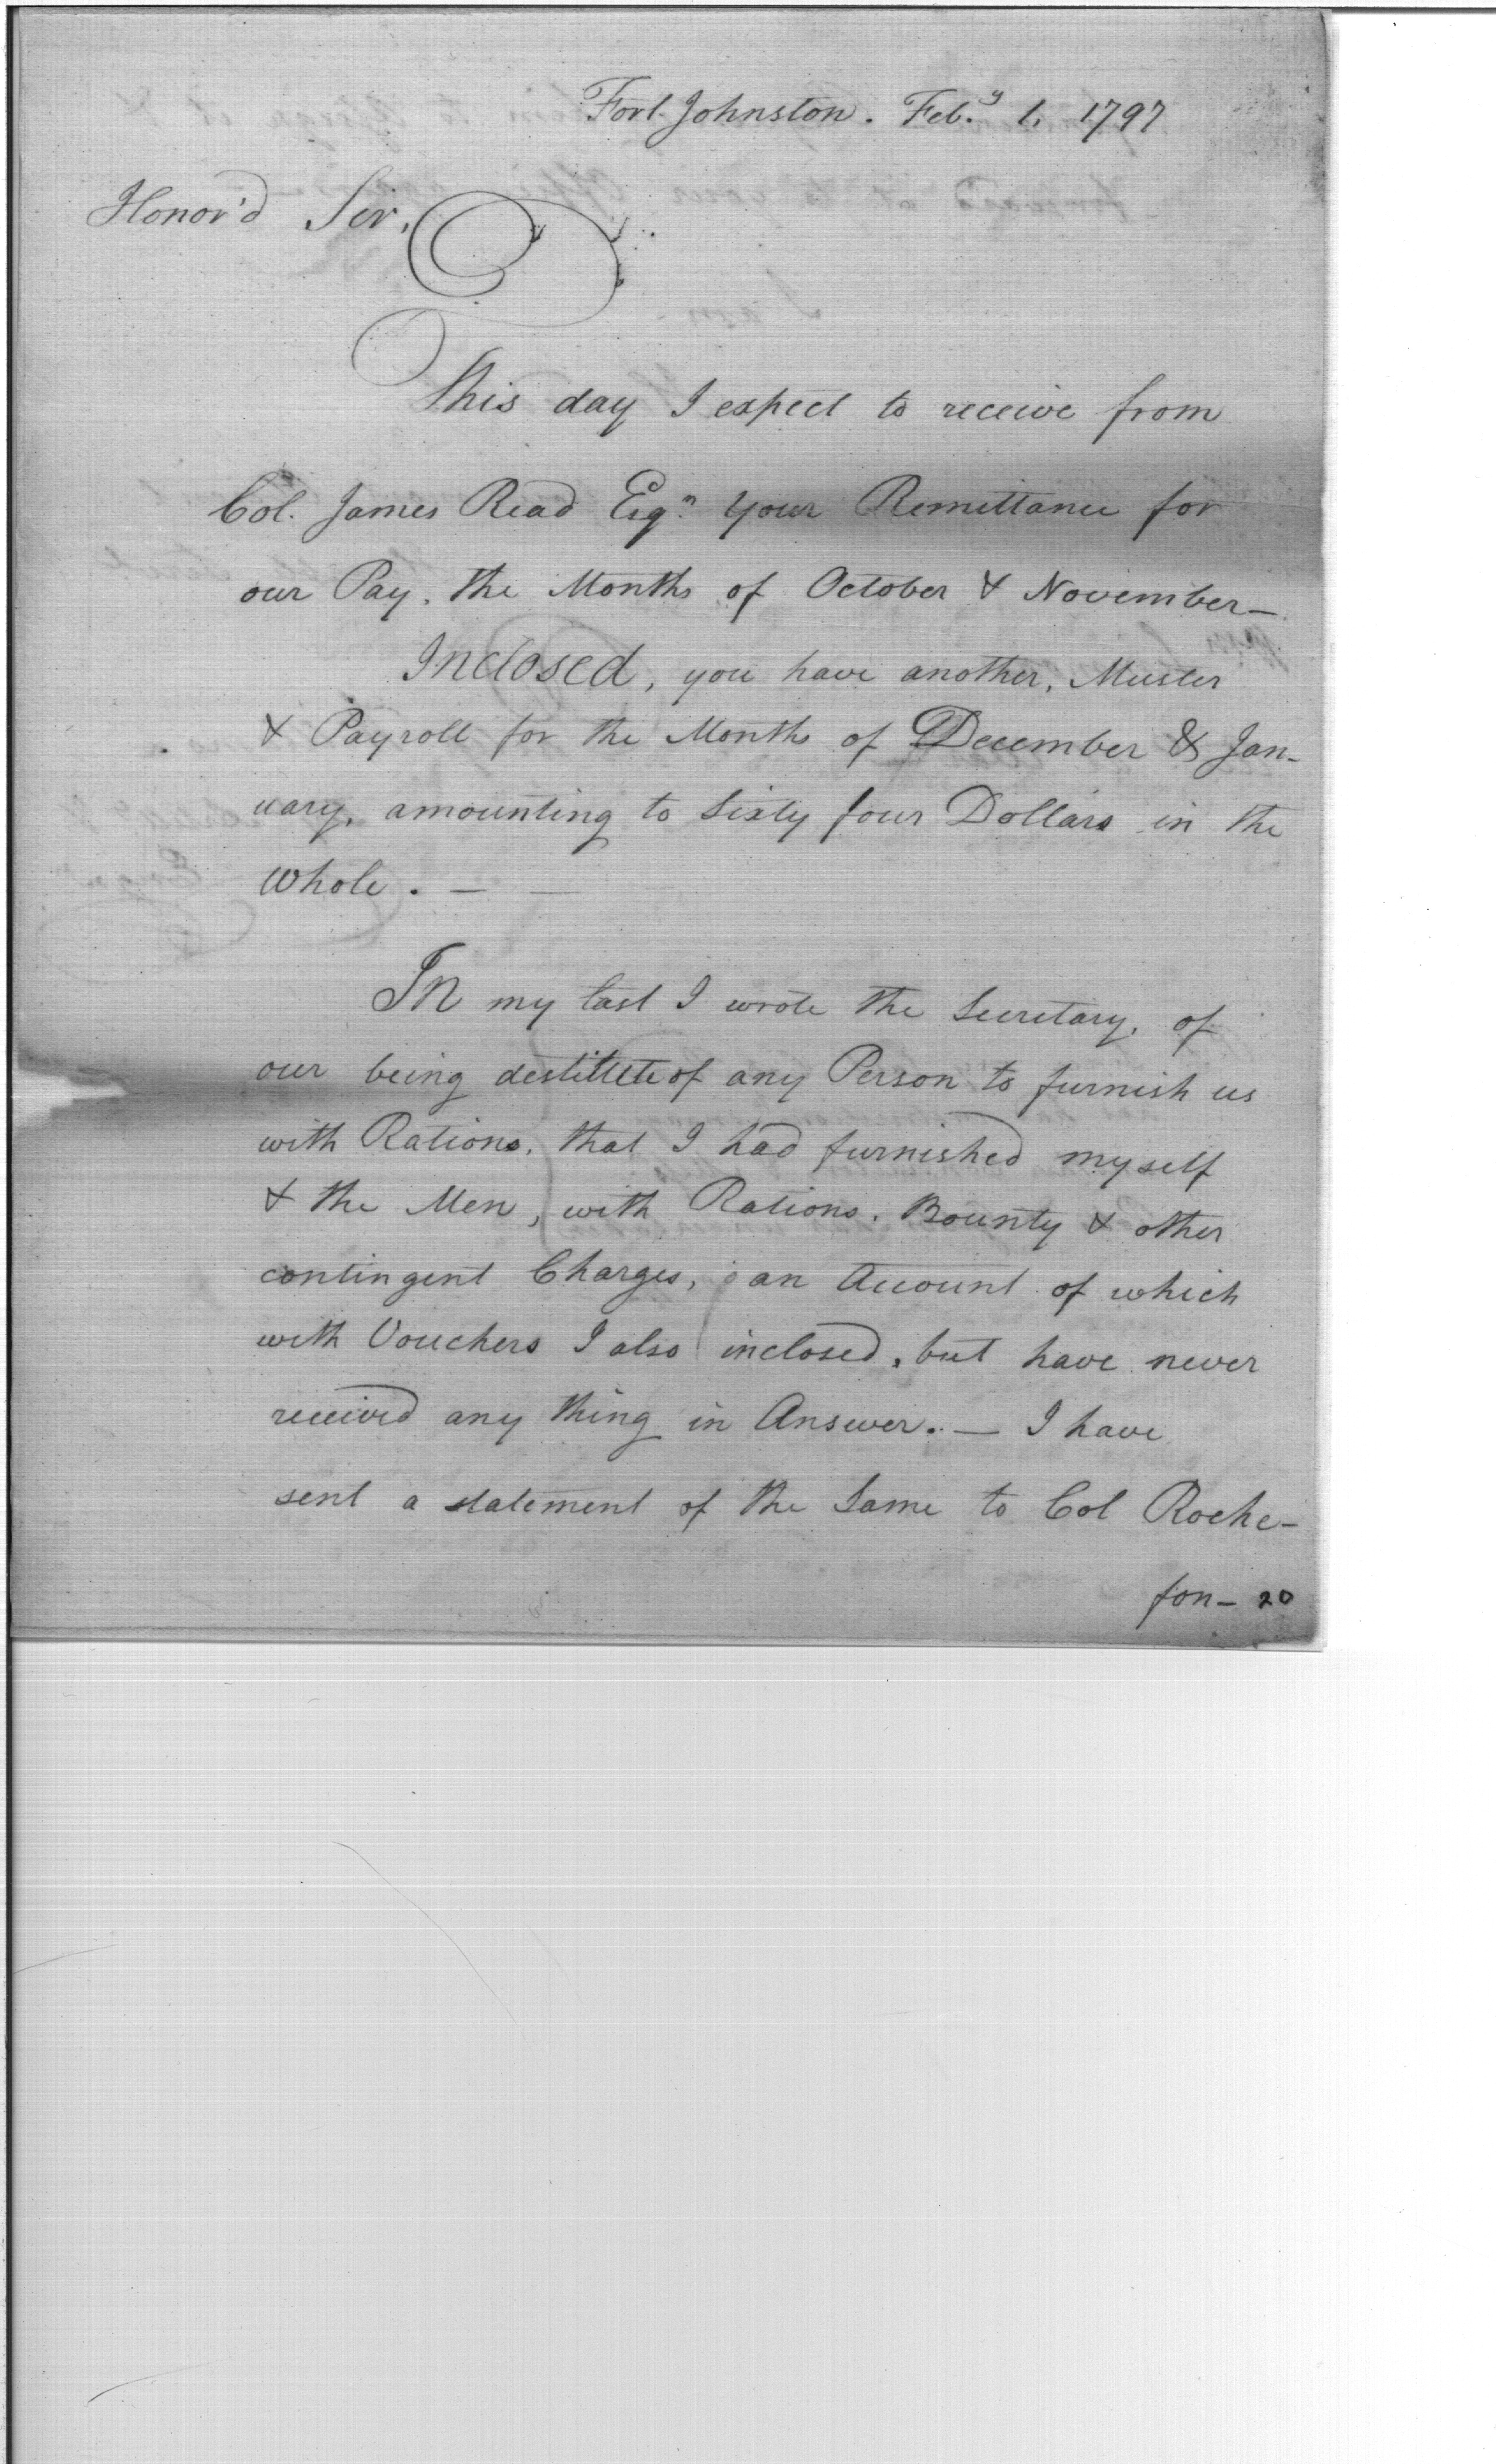 Fort Johnston. Feb.y 1, 1797
Honor'd Sir,
This day I expect to receive from
Col. James Read Esqr. your Remittance for
our Pay, the Months of October & November—
Inclosed, you have another, Muster
& Payroll for the Months of December & Jan-
uary, amounting to Sixty four Dollars in the
Whole. — —
In my last I wrote the Secretary, of
our being destitute of any Person to furnish us
with Rations, that I had furnished myself
& the Men, with Rations. Bounty & other
contingent Charges, an Account of which
with Vouchers I also inclosed, but have never
received any thing in Answer. — I have
sent a statement of the Same to Col Roche-
fon- 20